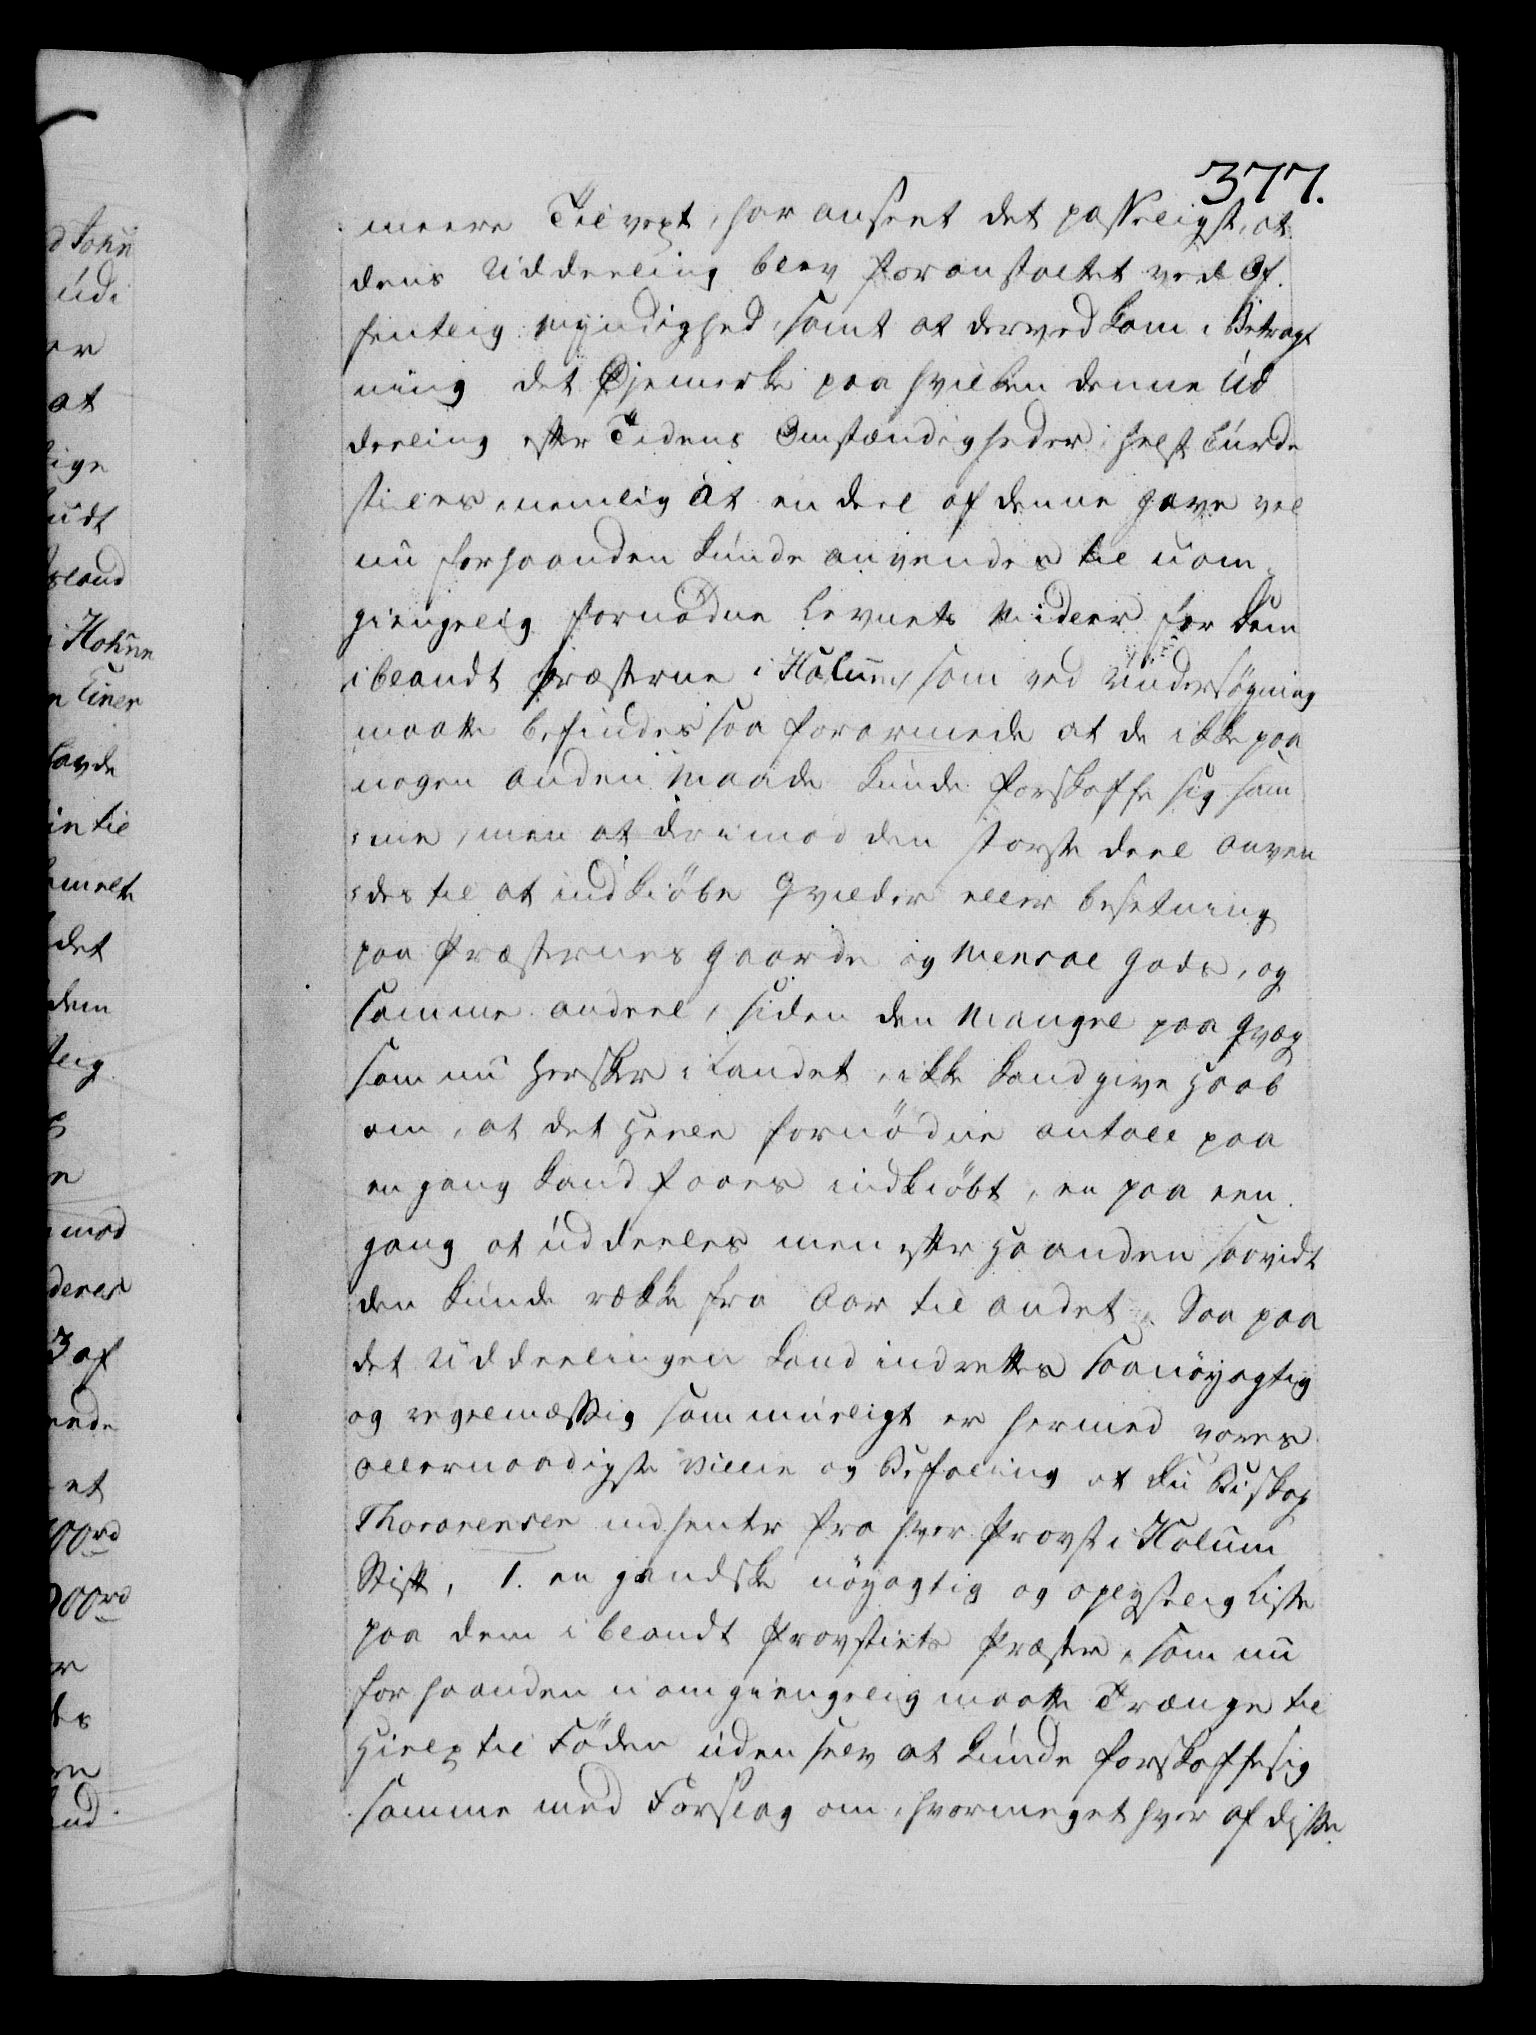 377.
meere Tilvext, har anseet det passeligst, at
dens Uddeeling blev foranstaltet ved Of¬
fentlig Myndighed, samt at derved kom i Betragt
ning det Øjemerke paa hvilken denne Ud
deeling efter Tidens Omstændigheder helst burde
stiles, nemlig at en deel af denne gave vel
nu forhaanden kunde anvendes til uom¬
giengelig fornødne Levnets Midler for dem
iblandt Præsterne i Holum, som ved Undersøgning
maatte befindes saa forarmede at de ikke paa
nogen anden Maade kunde forskaffe sig sam
me, men at derimod den største deel anven
des til at indkiøbe Qvilder eller besetning
paa Præsternes gaarde og Mensal gods, og
samme andeel, siden den Mangel paa Qvæg
som nu hersker i Landet, ikke kand give Haab
om, at det heele fornødne antall paa
en gang kand faaes indkiøbt, en paa een
gang at uddeeles men efter Haanden saavidt
den kunde række fra Aar til andet. Saa paa
det Uddeelingen kand indrettes saa nøyagtig
og regelmæssig som mueligt er hermed vores
allernaadigste Villie og Befaling at du Biskop
Thorarensen indhenter fra hver Provst i Holum
Stift, 1. en gandske nøyagtig og oplystelig Liste
paa dem iblandt Provstiets Præster, som nu
forhaanden uomgiengelig maatte Trænge til
Hielp til Føden uden selv at kunde forskaffe sig
samme med Forslag om, hvormeget hver af disse